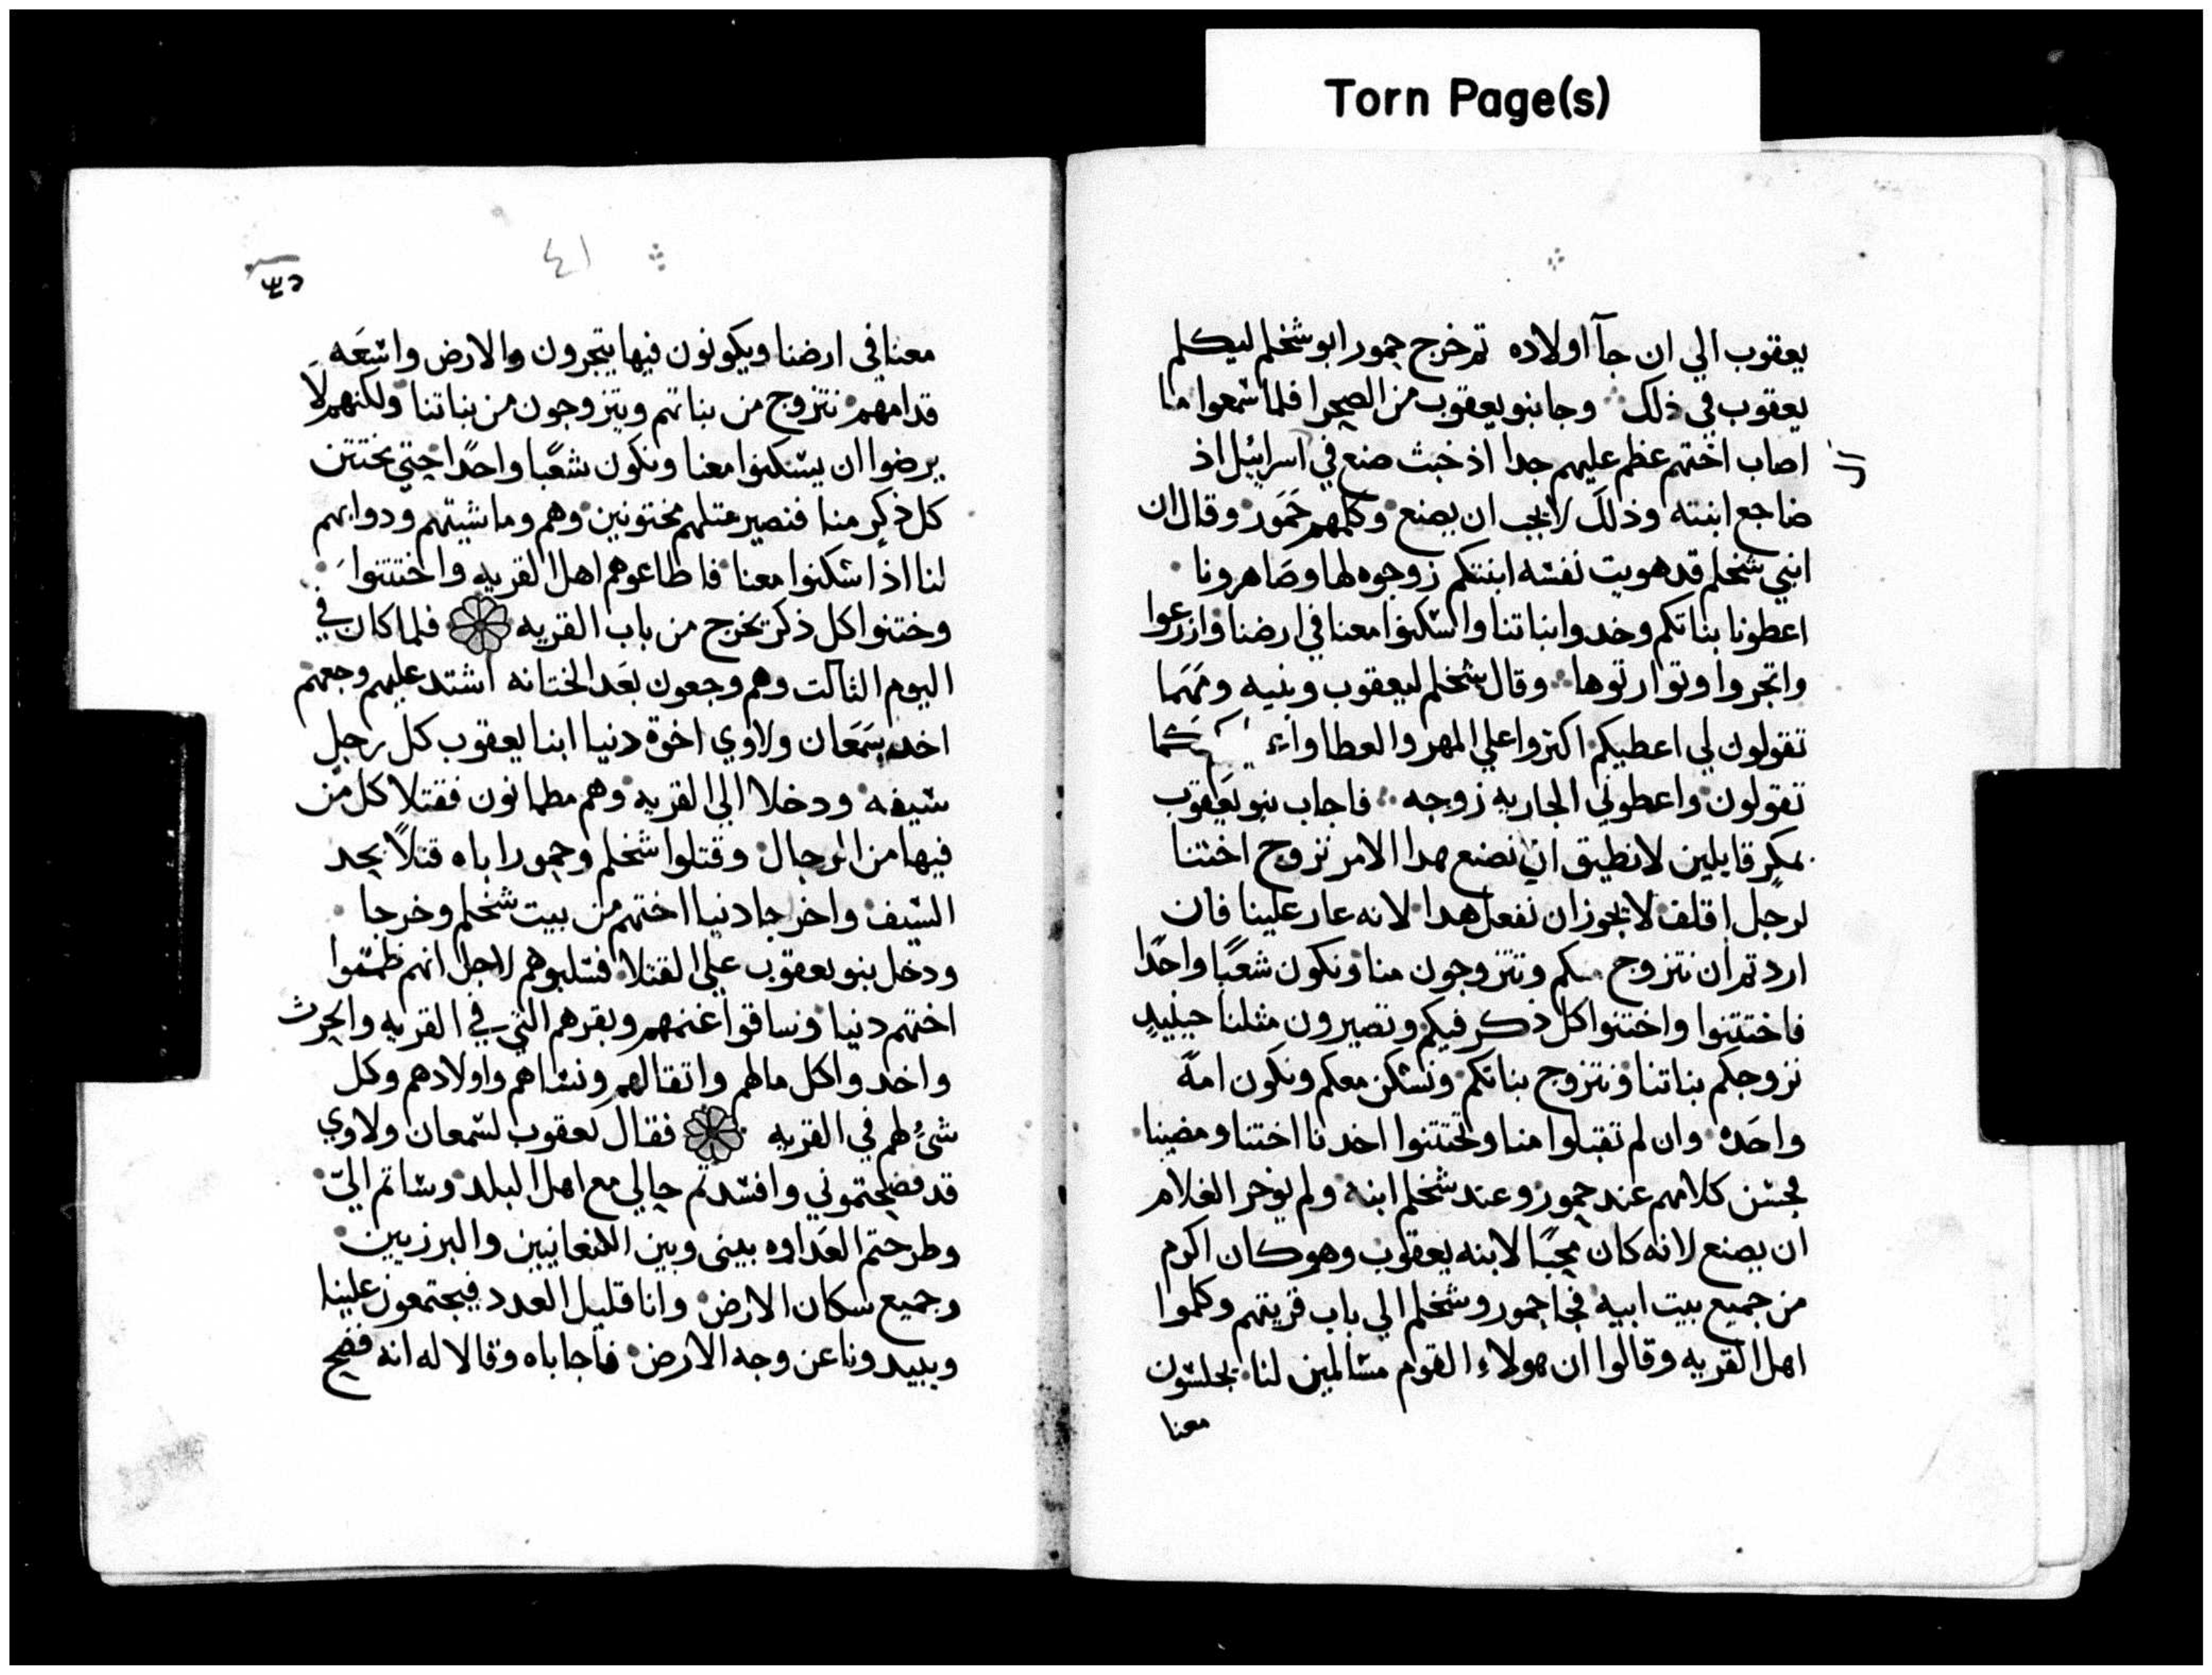 Torn Page(s)
يعقوب الي ان جآ اولاده تم خرج حمور ابو شخلم ليكلم
يعقوب في ذلك وجا بنو يعقوب من الصحرا فلما سمعوا ما
اصاب اختهم عظم عليهم جدا اذ خبث صنع في اسراييل اذ
ضاجع ابنته وذلك لا يجب ان يصنع وكلمهم حمور وقال ان
ابني شخلم قد هويت نفسه ابنتكم زوجوه لها وصاهرونا
اعطونا بناتكم وخدوا بناتنا واسكنوا معنا في ارضنا وازرعوا
واتجروا وتوارتوها وقال شخلم ليعقوب وبنيه ومهما
تقولون لي اعطيكم اكتروا علي المهر والعطا واعطيكم كما
تقولون واعطوني الجاريه زوجه فاجاب بنو يعقوب
بمكر قايلين لا نطيق ان نصنع هدا الامر نزوج اختنا
لرجل اقلف لا يجوز ان نفعل هدا لانه عار علينا فان
اردتم ان نتزوج منكم وتتزوجون منا ونكون شعبًا واحدًا
فاختتنوا واختنوا كل ذكر فيكم وتصيرون مثلنا حينيدٍ
نزوجكم بناتنا ونتزوج بناتكم ونسكن معكم ونكون امةً
واحده وان لم تقبلوا منا وتختتنوا اخدنا اختنا ومضينا
فحسن كلامهم عند حمور وعند شخلم ابنه ولم يوخر الغلام
ان يصنع لانه كان محبًا لابنه يعقوب وهو كان اكرم
من جميع بيت ابيه فجا حمور وشخلم الي باب قريتهم وكلموا
اهل القريه وقالوا ان هولاء القوم مسالمين لنا يجلسون
معنا
٤١
معنا في ارضنا ويكونون فيها يتجرون والارض واسعه
قدامهم نتزوج من بناتهم ويتزوجون من بناتنا ولكنهم لا
يرضوا ان يسكنوا معنا ونكون شعبًا واحدًا حتي يختتن
كل ذكر منا فنصير متلهم مختونين وهم وماشيتهم ودوابهم
لنا اذا سكنوا معنا فاطاعوهم اهل القريه واختتنوا
وختنوا كل ذكر يخرج من باب القريه فلما كان في
اليوم الثالت وهم وجعون بعد الختانه اشتد عليهم وجعهم
اخد سمعان ولاوي اخوة دنيا ابنا يعقوب كل رجل
سيفه ودخلا الي القريه وهم مطمانون فقتلا كل من
فيها من الرجال وقتلوا شخلم وحمور اباه قتلاً بحد
السيف واخرجا دنيا اختهم من بيت شخلم وخرجا
ودخل بنو يعقوب علي القتلا فسلبوهم لاجل انهم
اختهم دنيا وساقوا غنمهم وبقرهم التي في القريه والحرث
واخدوا كل مالهم واتقالهم ونساهم واولادهم وكل
شيءٍ لهم في القريه فقال يعقوب لسمعان ولاوي
قد فضحتموني وافسدتم حالي مع اهل البلد وساتم اليّ
وطرحتم العداوه بيني وبين الكنعانيين والبرزيين
وجميع سكان الارض وانا قليل العدد فيجتمعون علينا
ويبيدونا عن وجه الارض فاجاباه وقالا له انه فضح